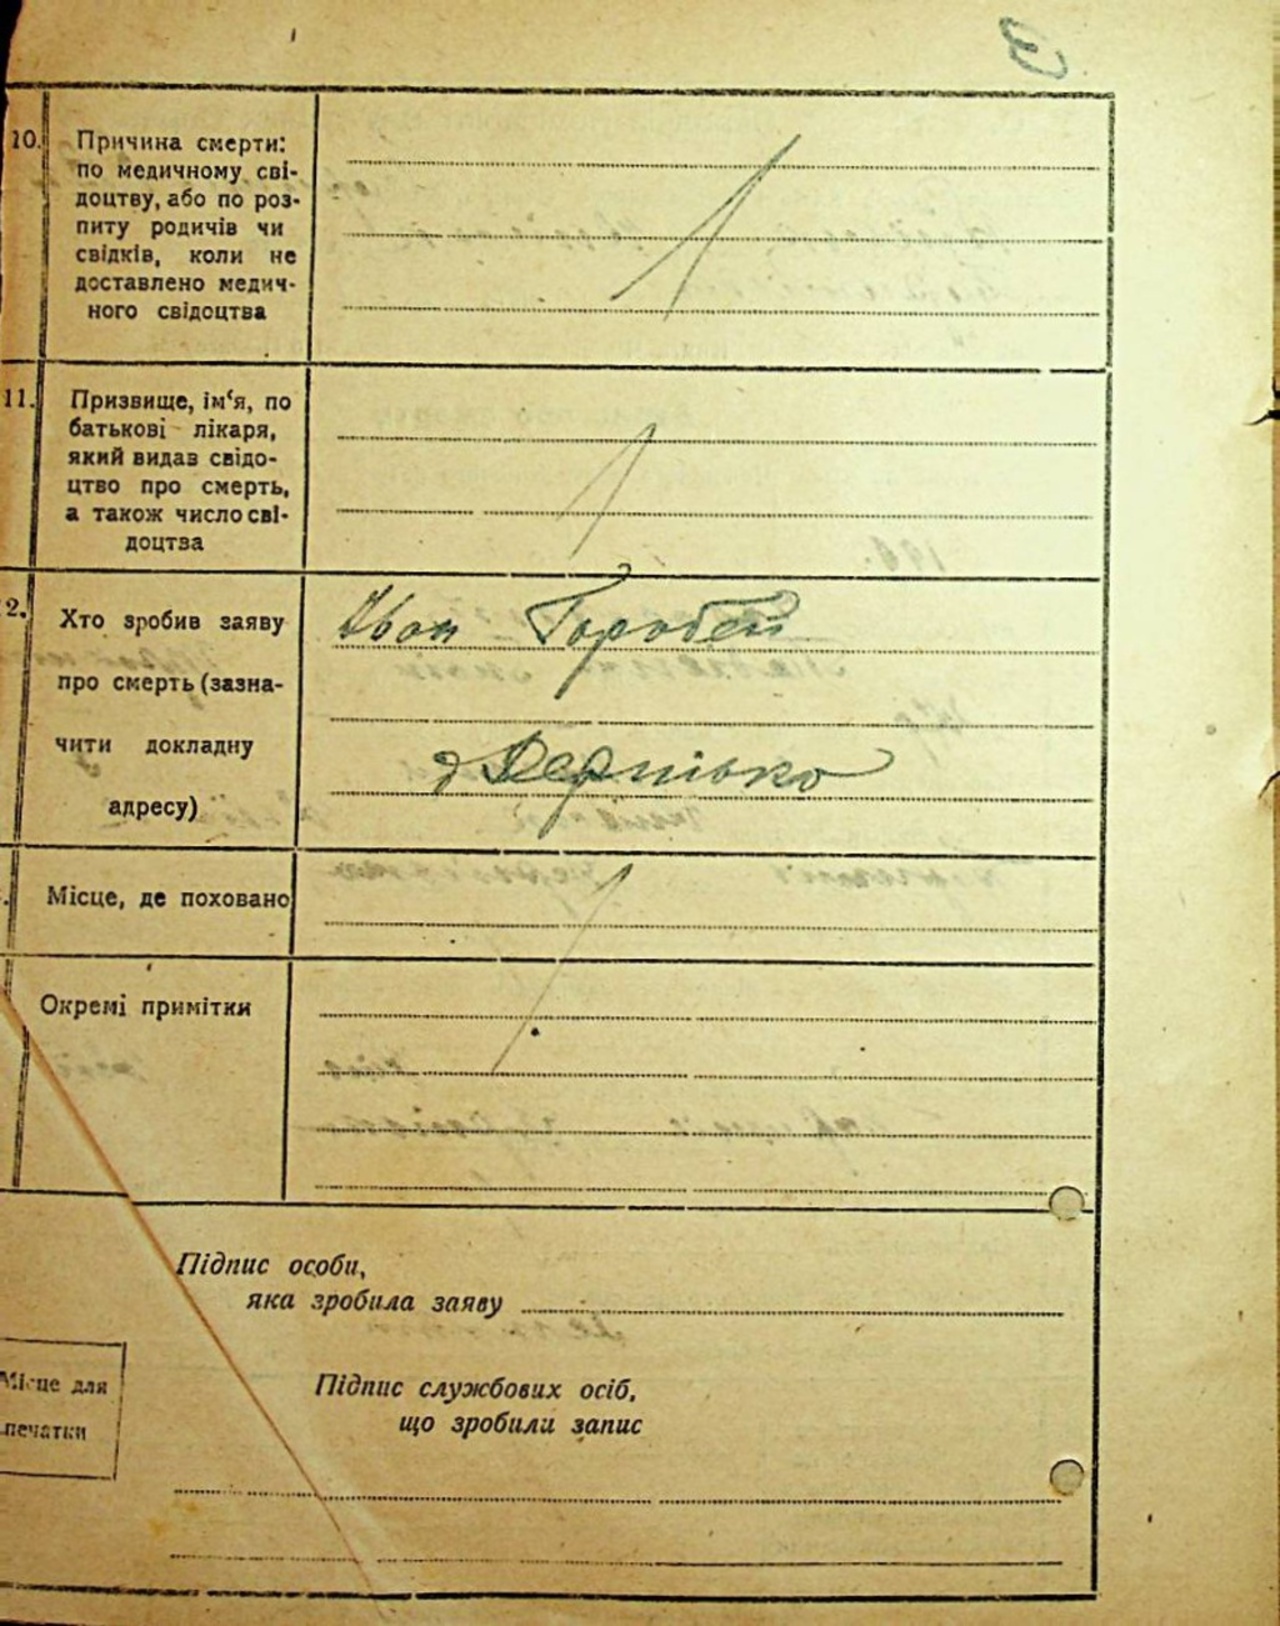 10. Причина смерти:
по медичному сві-
доцтву, або по роз-
питу родичів чи
свідків, коли не
доставлено медич-
ного свідоцтва
11. Призвище, ім‘я, по
батькові лікаря,
який видав свідо-
цтво про смерть,
а також число сві-
доцтва
2. Хто зробив заяву
про смерть (зазна-
чити докладну
адресу)
Іван Горобей
Місце, де поховано
Окремі примітки
Підпис особи,
яка зробила заяву
Місце для
печатки
Підпис службових осіб,
що зробили запис